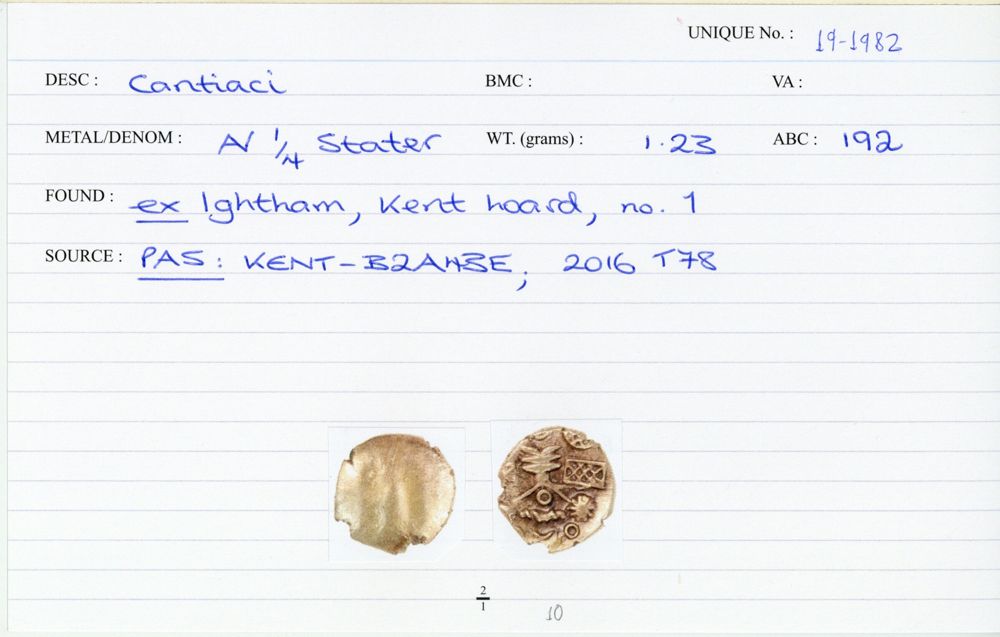 UNIQUE No. : 19-1982
DESC : Cantiaci BMC : VA :
METAL/DENOM : AV 1/4 Stater WT. (grams) : 1.23 ABC : 192
FOUND : ex Ightham, Kent hoard, no. 1
SOURCE : PAS: KENT-B2A43E; 2016 T78
2/1
10